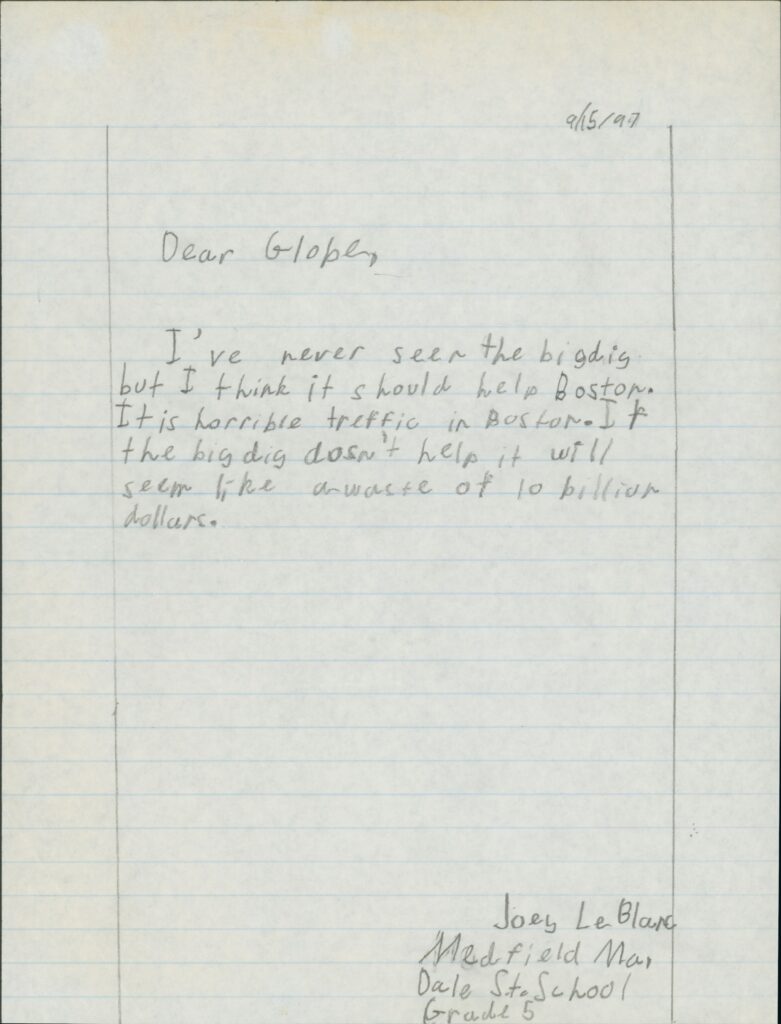 9/15/97
Dear Globe,
I've never seen the bigdig
but I think it should help Boston.
It is horrible treffic in Boston. If
the big dig dosn't help it will
seem like a waste of 10 billion
dollars.
Joey LeBlanc
Medfield Ma,
Dale St. School
Grade 5